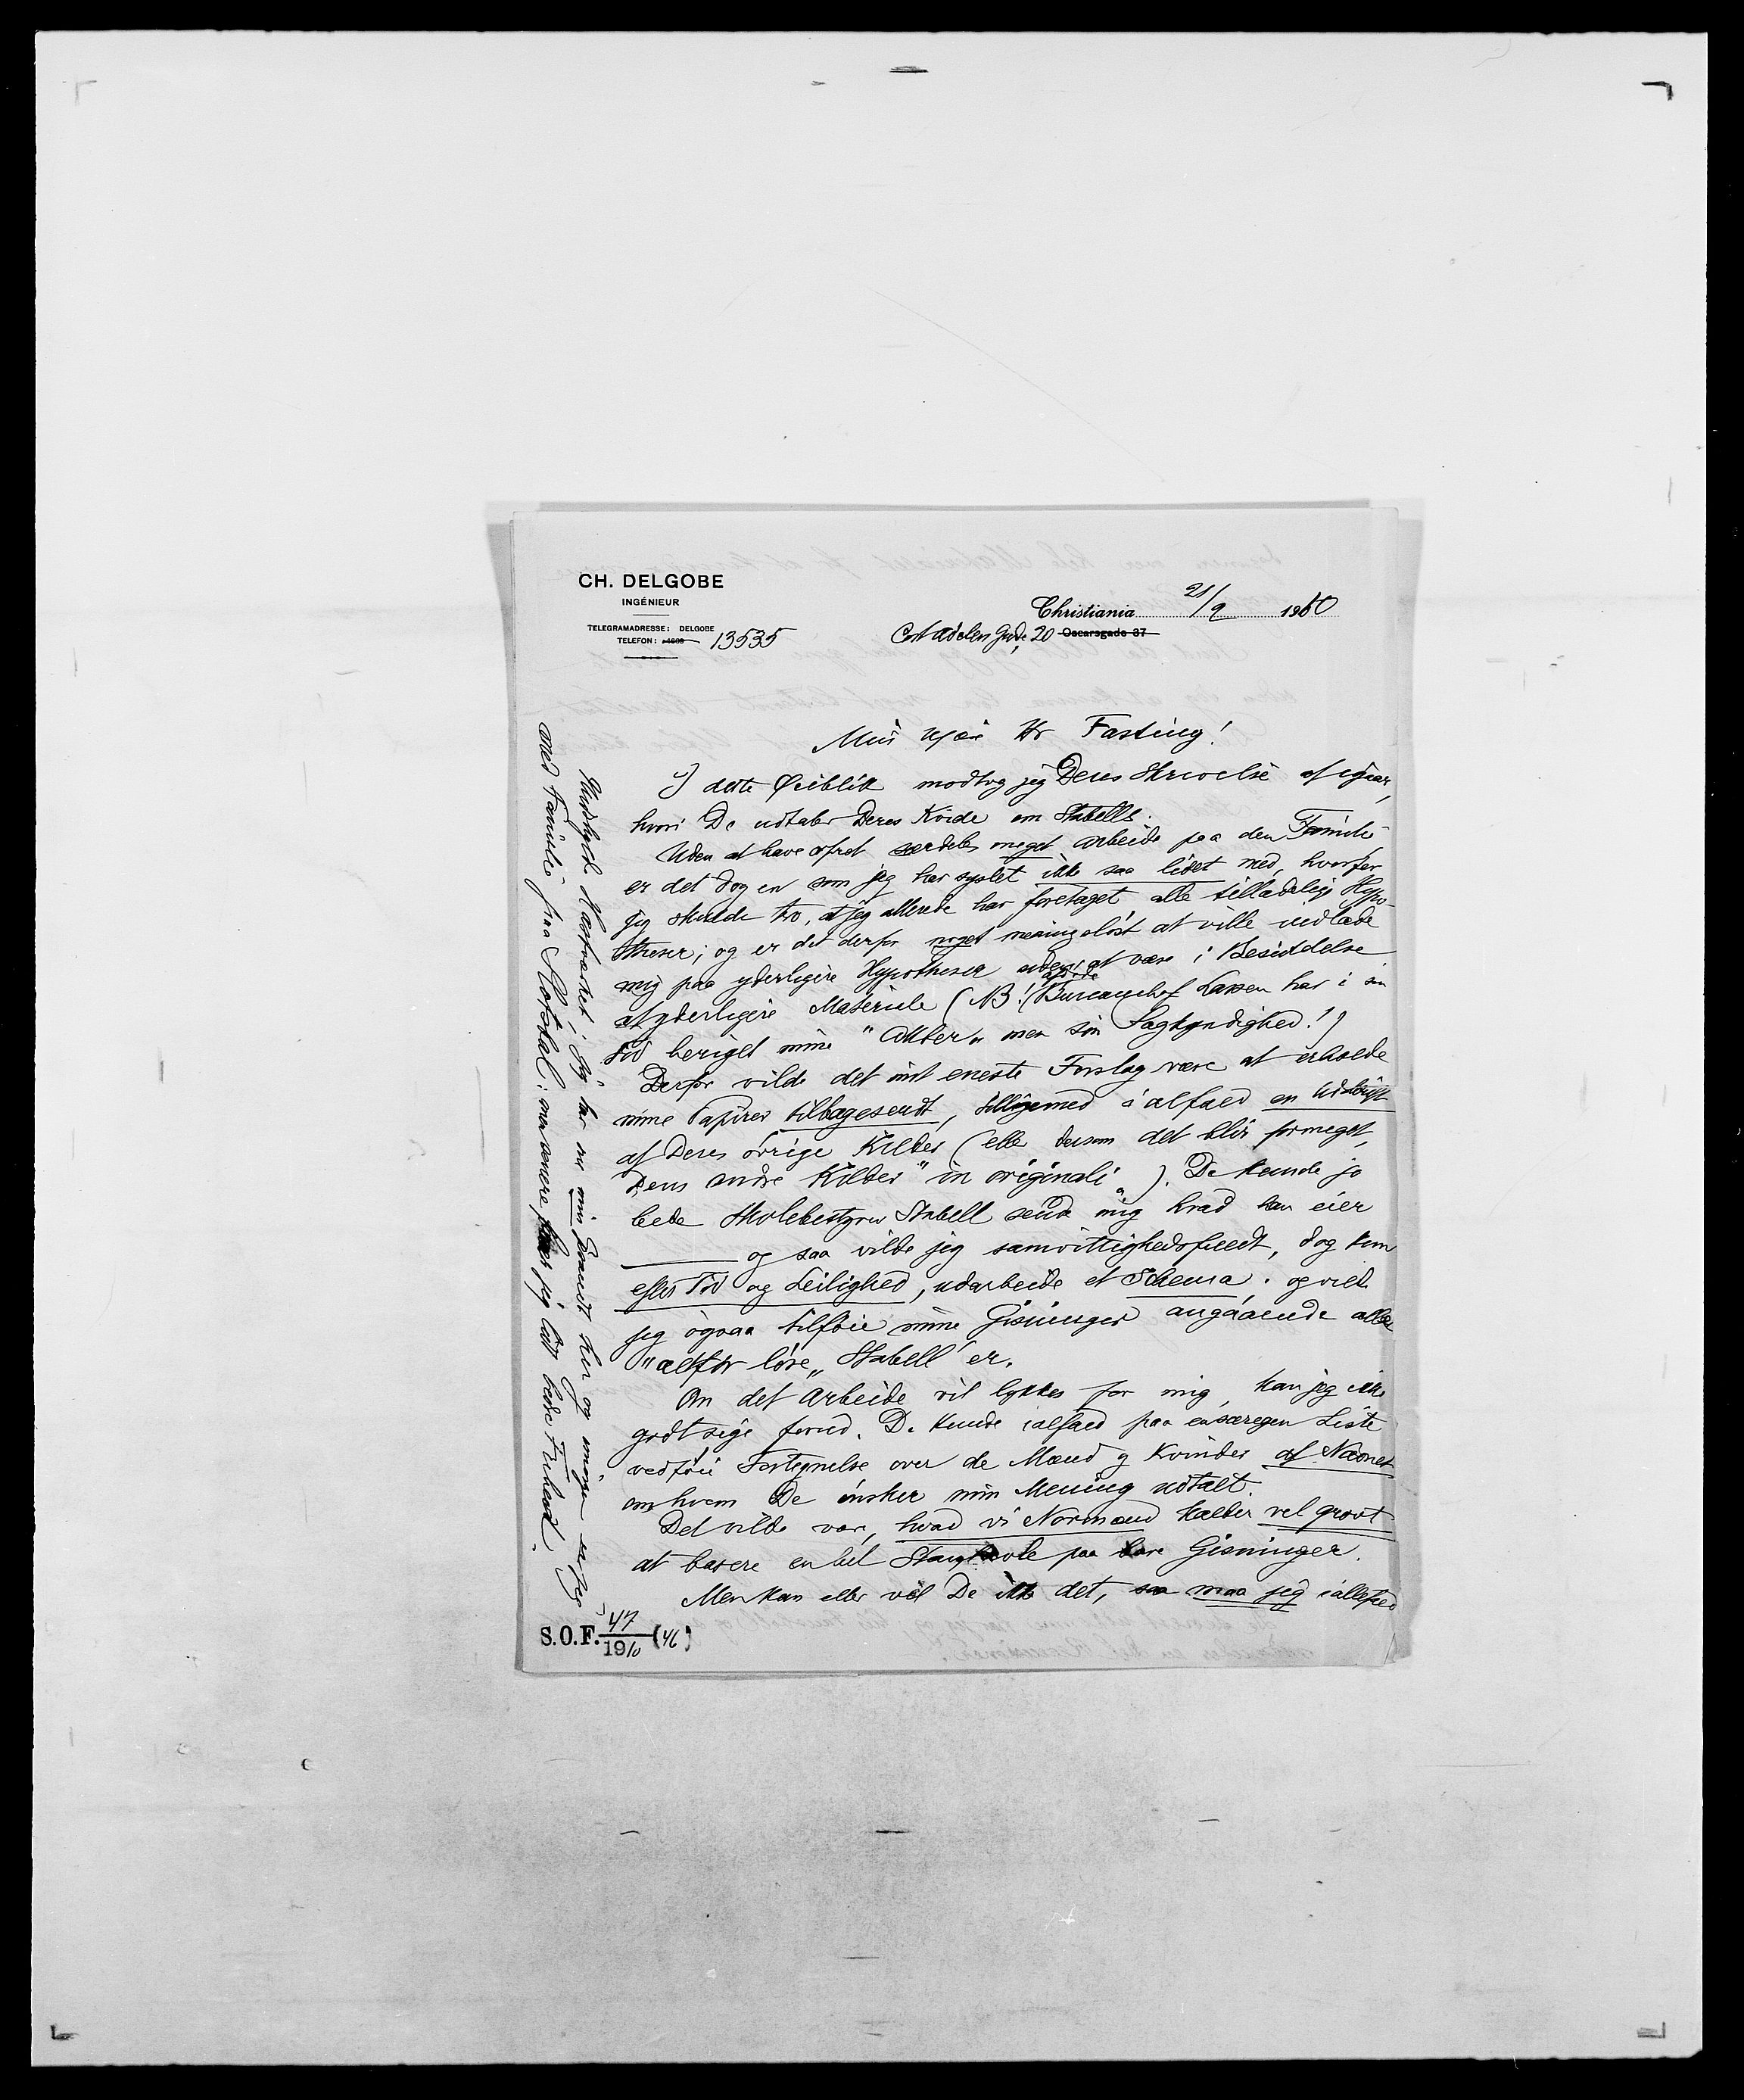 CH. DELGOBE
INGÉNIEUR
TELEGRAMADRESSE: DELGOBE
TELEFON: 13535
Christiania 21/9 1910
Cort Adelers Gade, 20 Oscarsgade 37
Min kjære Hr Fasting!
I dette Øieblik modtog jeg Deres Skrivelse af igaar,
hvori De udtaler Deres om Stabells.
Uden at have ofret særdeles meget arbeide paa den Familie
er det dog en som jeg har syslet ikke saa lidet med, hvorfor
jeg skulde tro, at jeg allerede har foretaget alle tilladelige Hypo-
theser; og er det derfor noget meningsløst at ville indlade
mig paa yderligere Hypotheser uden at være i Besiddelse
af yderligere Materiale (NB! afdøde Bureauchef Lassen har i sin
Tid beriget mine "Akter" med sin Sagkyndighed!)
Derfor vilde det mit eneste Forslag være at erholde
mine Papirer tilbagesendt, tilligemed ialfald en Udskrift
af Deres øvrige Kilder (eller dersom det blir formeget,
Deres andre Kilder "in originali"). De kunde jo
bede Skolebestyrer Stabell sende mig hvad han eier
og saa vilde jeg samvittighedsfuldt, dog kun
efter Tid og Leilighed, udarbeide et Schema, og vilde
jeg ogsaa tilføie mine Gisninger angaaende alle
"altfor løse" Stabell'er.
Om det Arbeide vil lykkes for mig, kan jeg ikke
godt sige forud. De kunde ialfald paa en særegen Liste
vedføie Fortegnelse over de Mænd og Kvinder af Navnet
om hvem De ønsker min Mening udtalt.
Det vilde være, hvad vi Normænd kalder vel grovt
at basere en hel Stamtavle paa bare Gisninger.
Men kan eller vil De ikke det, saa maa jeg iallefald
S.O.F. 47/1910 (46)
jeg har nu min her og imorgen er jeg
med Familie fra Slottet: men senere jeg lidt bedre Frihed.